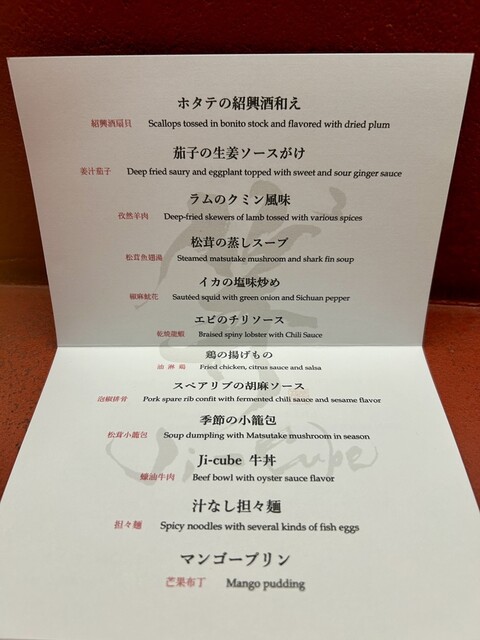 ホタテの紹興酒和え
紹興酒扇貝 Scallops tossed in bonito stock and flavored with dried plum
茄子の生姜ソースがけ
姜汁茄子 Deep fried saury and eggplant topped with sweet and sour ginger sauce
ラムのクミン風味
孜然羊肉 Deep-fried skewers of lamb tossed with various spices
松茸の蒸しスープ
松茸魚翅湯 Steamed matsutake mushroom and shark fin soup
イカの塩味炒め
椒麻魷花 Sautéed squid with green onion and Sichuan pepper
エビのチリソース
乾燒龍蝦 Braised spiny lobster with Chili Sauce
鶏の揚げもの
油淋鶏 Fried chicken, citrus sauce and salsa
スペアリブの胡麻ソース
泡椒排骨 Pork spare rib confit with fermented chili sauce and sesame flavor
季節の小籠包
松茸小籠包 Soup dumpling with Matsutake mushroom in season
Ji-cube 牛丼
蠔油牛肉 Beef bowl with oyster sauce flavor
汁なし担々麺
担々麺 Spicy noodles with several kinds of fish eggs
マンゴープリン
芒果布丁 Mango pudding
Ji-Cube